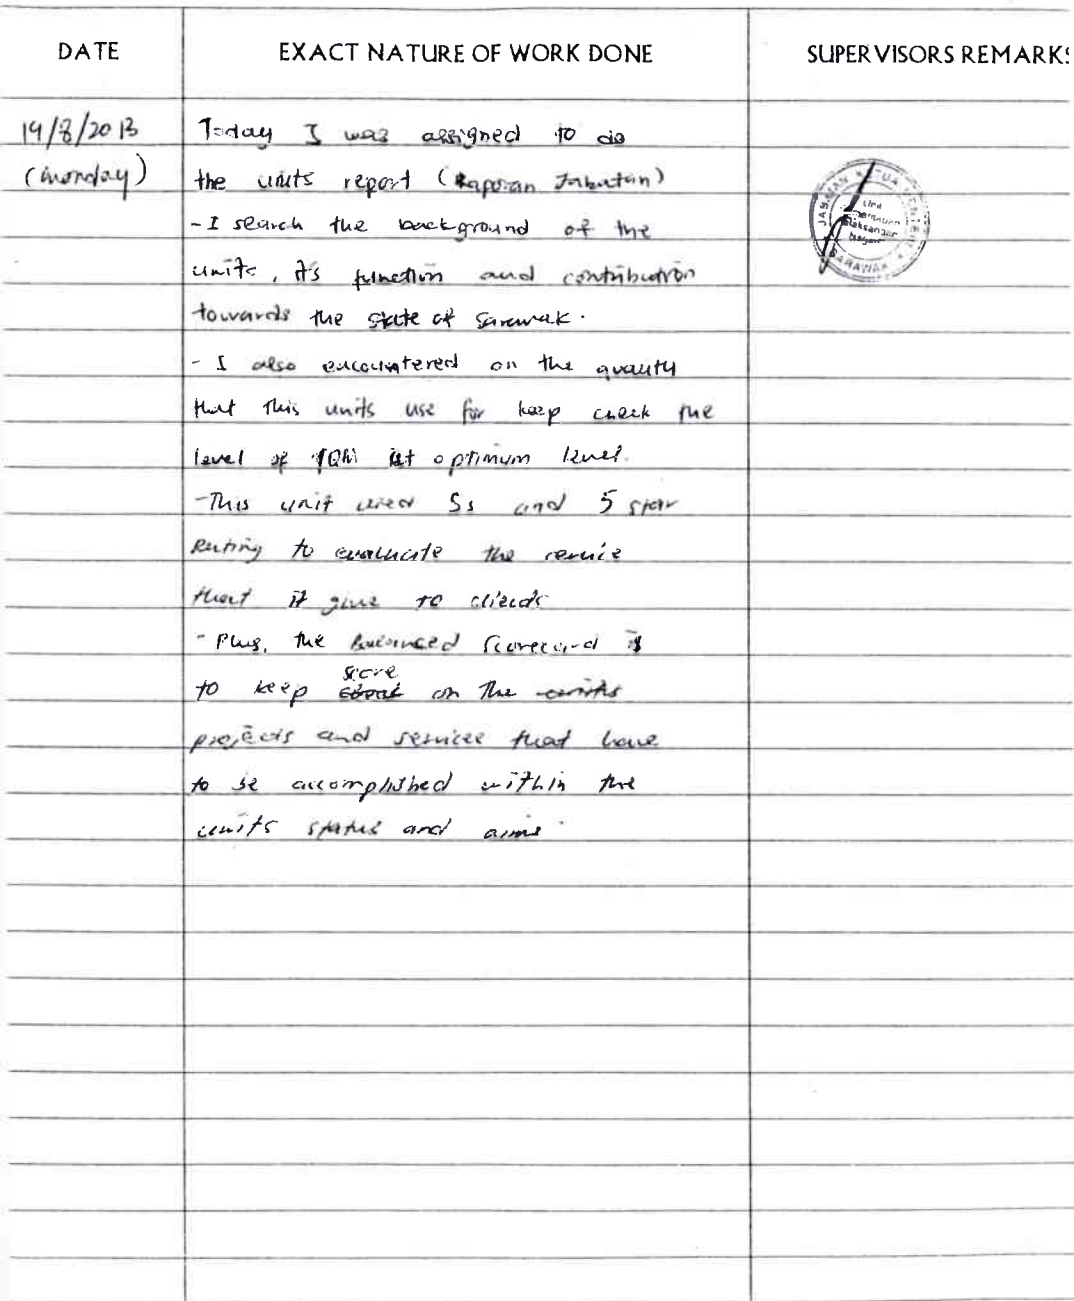 DATE EXACT NATURE OF WORK DONE SUPERVISORS REMARKS
19/8/2013 Today I was assigned to do
(monday) the units report (Laporan Jabatan)
- I search the background of the
units, it's function and contribution
towards the state of Sarawak.
- I also encountered on the quality
that this units use for keep check the
level of TQM at optimum level.
- This unit used 5s and 5 star
Rating to evaluate the service
that it give to clients
- Plus, the Balanced Scorecard is
score
to keep on the units
projects and services that have
to be accomplished within the
units status and aims.
JABATAN KETUA MENTERI
SARAWAK
Unit